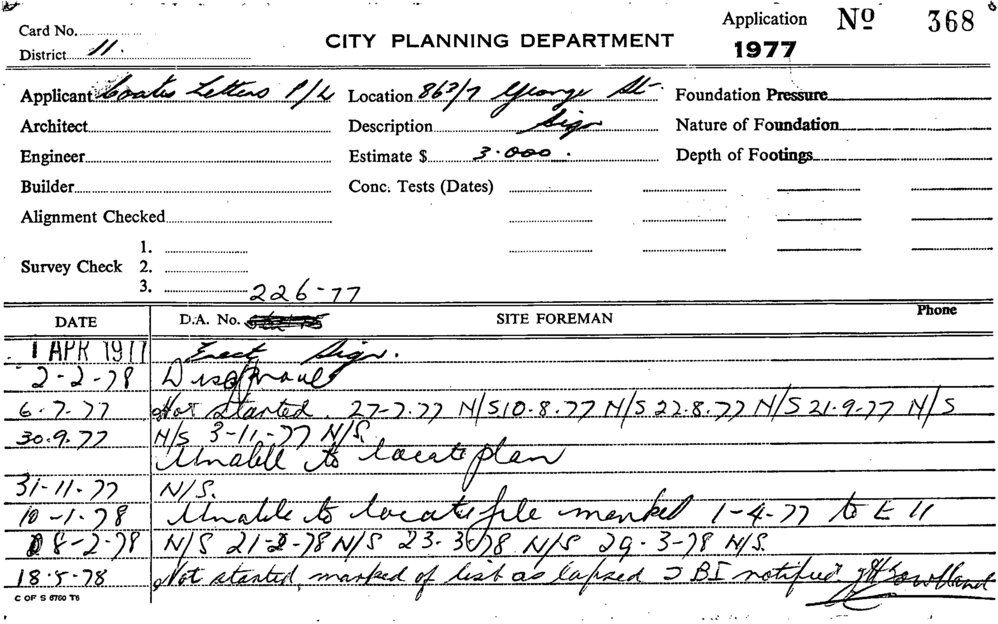 Card No.
District 11.
CITY PLANNING DEPARTMENT
Application Nº 368
1977
Applicant Coates Letters P/L Location 863/7 George St. Foundation Pressure
Architect Description Sign Nature of Foundation
Engineer Estimate $ 3.000. Depth of Footings
Builder Conc. Tests (Dates)
Alignment Checked
1.
Survey Check 2.
3.
226-77
DATE D.A. No. SITE FOREMAN Phone
1 APR 1977 Erect Sign.
2-2-78 Disapproval
6.7.77 Not Started. 27-7.77 N/S 10.8.77 N/S 22.8.77 N/S 21.9-77 N/S
30.9.77 N/S 3-11-77 N/S.
Unable to locate plan
31-11.77 N/S.
10-1.78 Unable to locate file marked 1-4-77 to E 11
8-2-78 N/S 21-2-78 N/S 23-3-78 N/S 29-3-78 N/S.
18.5-78 Not started, marked of list as lapsed BI notified
C OF S 6760 T6